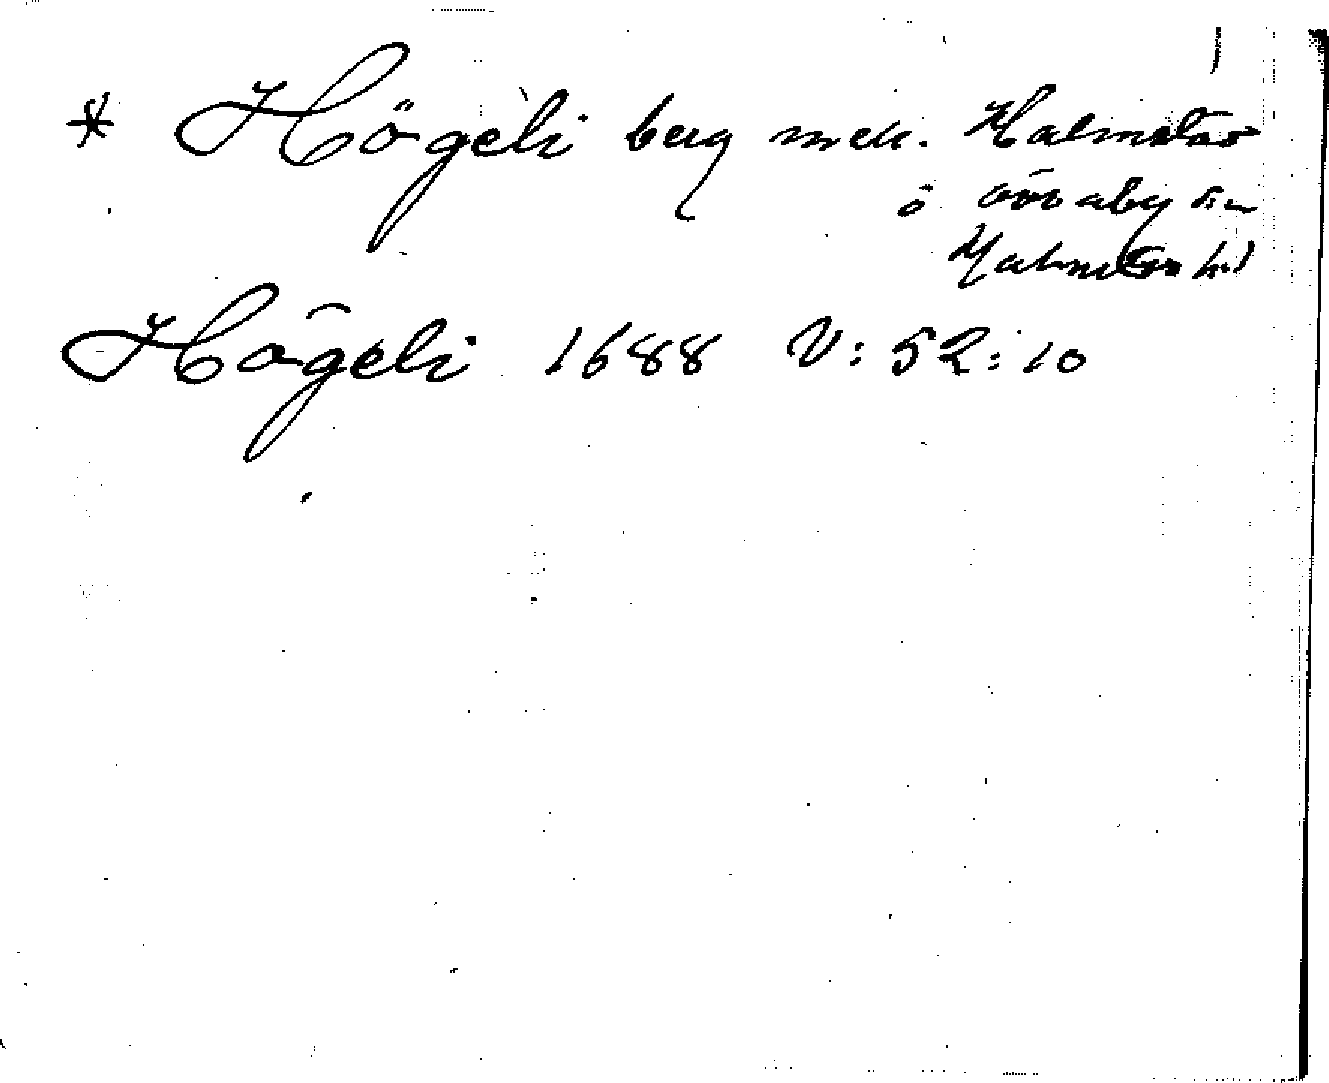 * Högeli berg mell. Halmstad
o Övraby sn
Halmstad hd
Högeli 1688 V:52:10